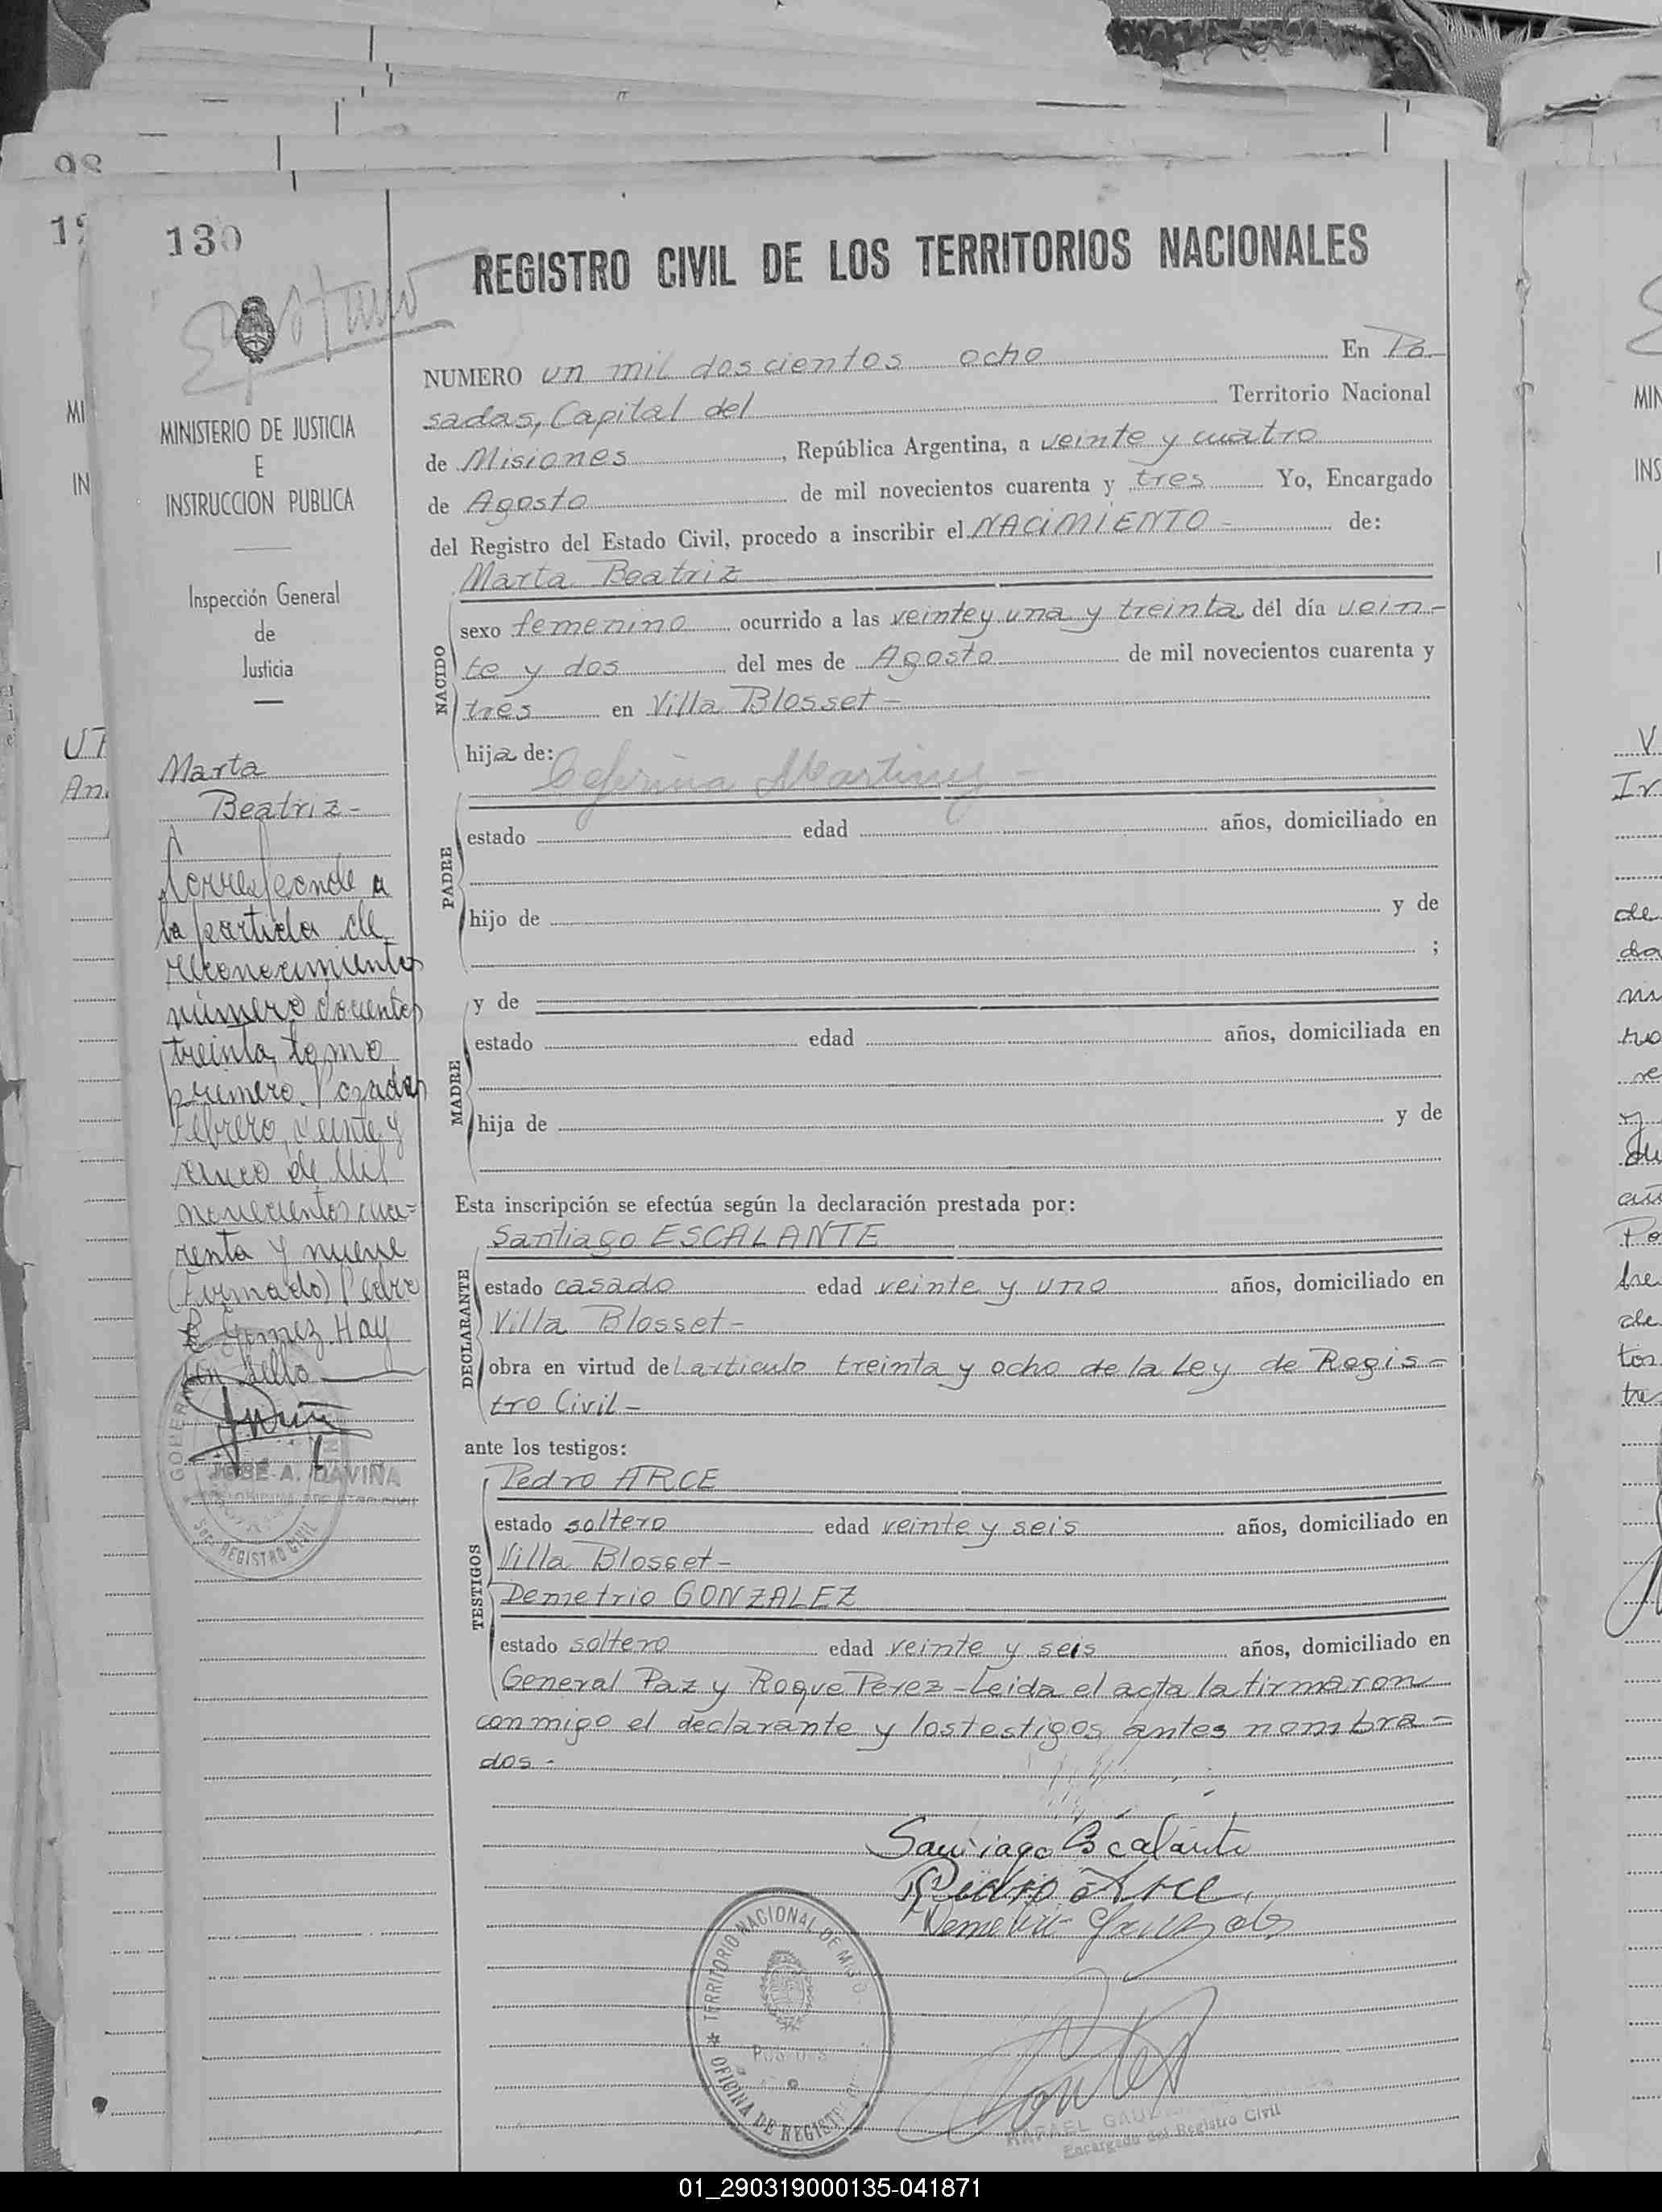 98
130
REGISTRO CIVIL DE LOS TERRITORIOS NACIONALES
MINISTERIO DE JUSTICIA
E
INSTRUCCION PUBLICA
Inspección General
de
Justicia
Marta
Beatriz-
Corresponde a
la partida de
reconocimiento
número doscientos
treinta, tomo
primero. Posadas
Febrero, veinte y
cinco de Mil
novecientos cua=
renta y nueve
(Firmado) Pedro
Gomez. Hay
un sello
JOSE A. DAVIÑA
REGISTRO CIVIL
NUMERO un mil doscientos ocho En Po
sadas, Capital del Territorio Nacional
de Misiones, República Argentina, a veinte y cuatro
de Agosto de mil novecientos cuarenta y tres Yo, Encargado
del Registro del Estado Civil, procedo a inscribir el NACIMIENTO- de:
Marta Beatriz
NACIDO
sexo femenino ocurrido a las veinte y una y treinta del día vein-
te y dos del mes de Agosto de mil novecientos cuarenta y
tres en Villa Blosset-
hija de:
Ceferina Martinez-
PADRE
estado edad años, domiciliado en
hijo de y de
;
y de
MADRE
estado edad años, domiciliada en
hija de y de
Esta inscripción se efectúa según la declaración prestada por:
Santiago ESCALANTE
DECLARANTE
estado casado edad veinte y uno años, domiciliado en
Villa Blosset-
obra en virtud del articulo treinta y ocho de la Ley de Regis-
tro Civil-
ante los testigos:
Pedro ARCE
TESTIGOS
estado soltero edad veinte y seis años, domiciliado en
Villa Blosset-
Demetrio GONZALEZ
estado soltero edad veinte y seis años, domiciliado en
General Paz y Roque Perez-Leida el acta la firmaron
conmigo el declarante y los testigos antes nombra-
dos-
Santiago Escalante
Pedro Arce
Demetrio Gonzalez
TERRITORIO NACIONAL DE MISIO
OFICINA DE REGISTRO
RAFAEL
Encargado del Registro Civil
01_290319000135-041871